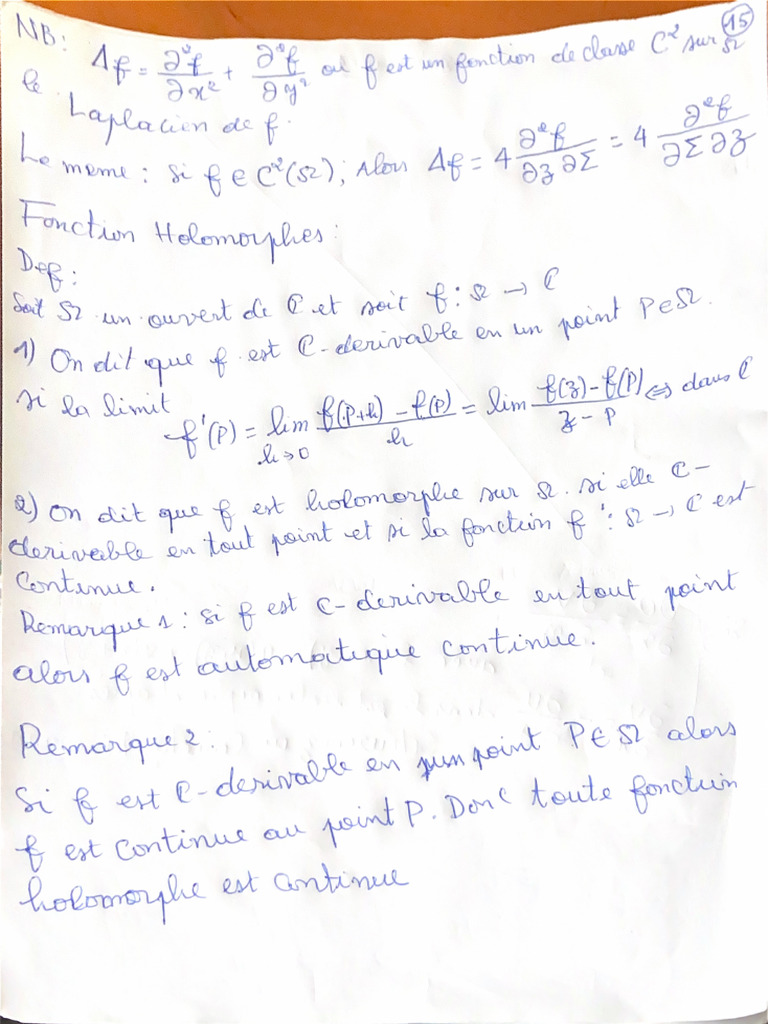 15
NB: Δf = ∂²f/∂x² + ∂²f/∂y² où f est un fonction de classe C² sur Ω
le Laplacien de f.
Le meme : si f ∈ C²(Ω), Alors Δf = 4 ∂²f/∂z∂Σ = 4 ∂²f/∂Σ∂z
Fonction Holomorphes:
Def:
Soit Ω un ouvert de ℂ et soit f : Ω → ℂ
1) On dit que f est ℂ-derivable en un point P∈Ω.
si la limit
f'(P) = lim h→0 f(P+h) - f(P)/h = lim f(z) - f(P)/z - P ⇔ dans ℂ
2) On dit que f est holomorphe sur Ω. si elle C-
derivable en tout point et si la fonction f' : Ω → C est
Continue.
Remarque 1 : si f est C-derivable en tout point
alors f est automatique continue.
Remarque 2 :
Si f est C-derivable en un point P∈Ω alors
f est Continue au point P. Donc toute fonction
holomorphe est continue